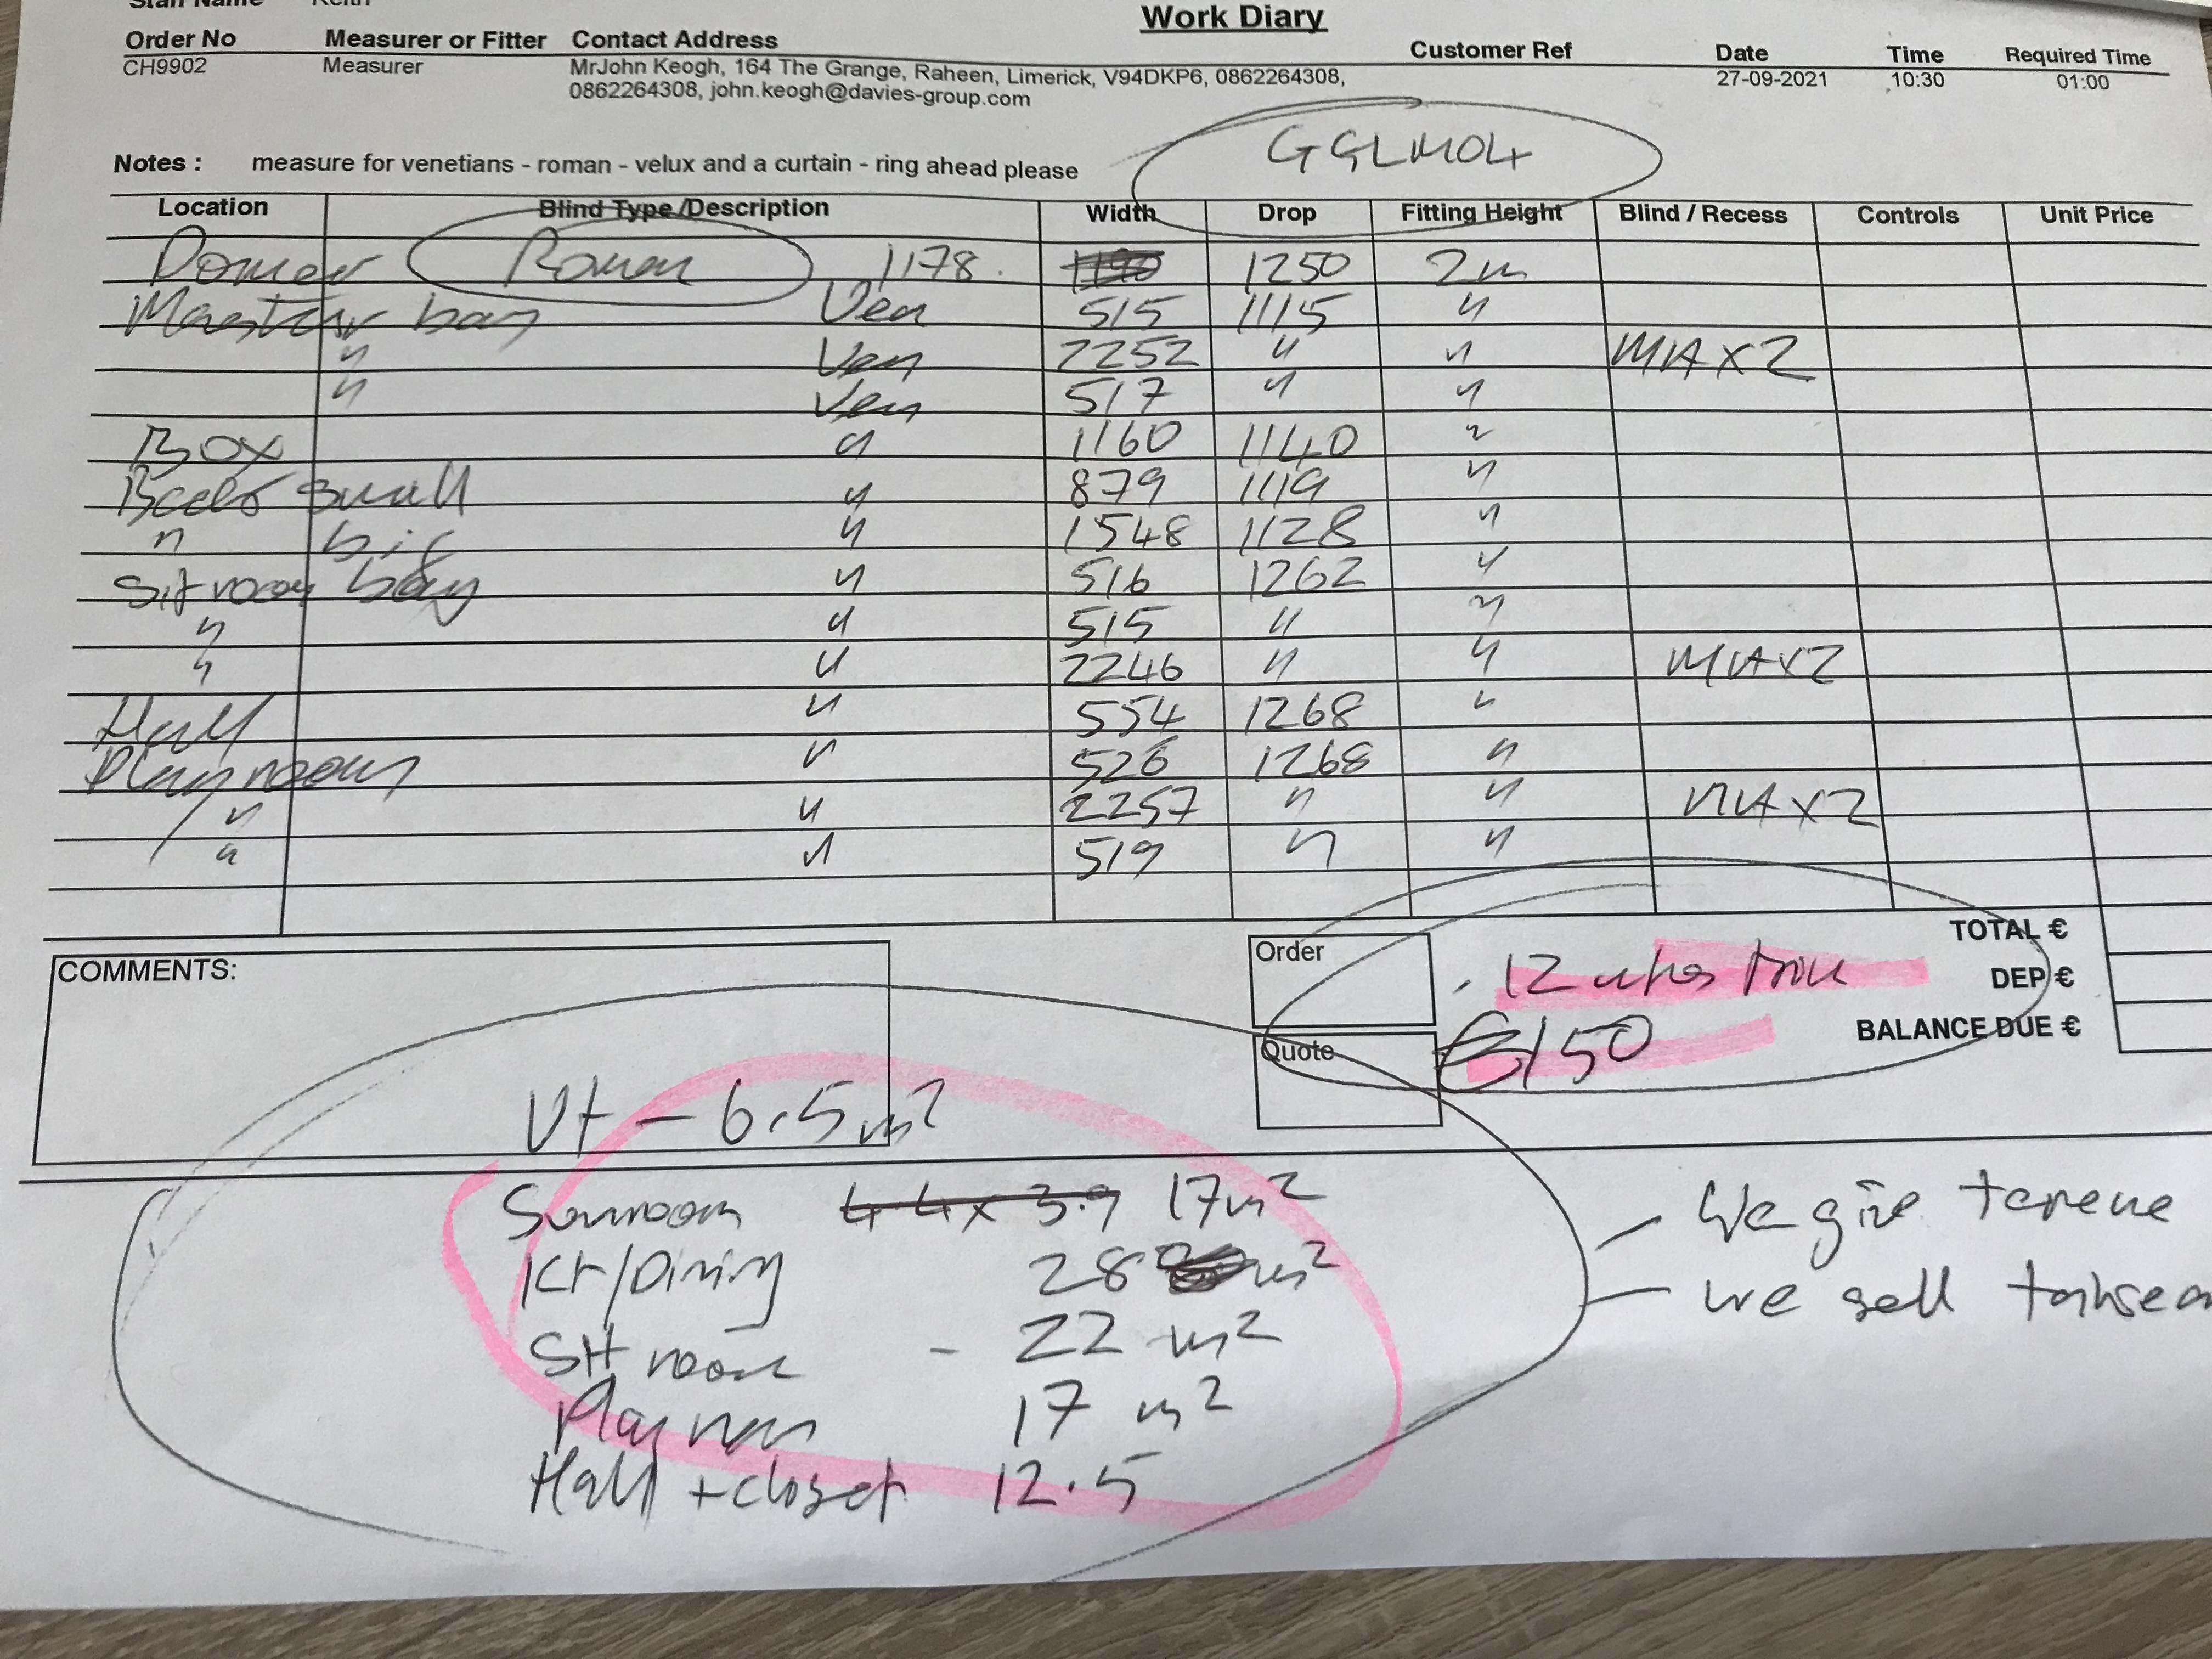 Staff Name Keith
Work Diary
Order No Measurer or Fitter Contact Address Customer Ref Date Time Required Time
CH9902 Measurer MrJohn Keogh, 164 The Grange, Raheen, Limerick, V94DKP6, 0862264308, 27-09-2021 10:30 01:00
0862264308, john.keogh@davies-group.com
GGLM04
Notes : measure for venetians - roman - velux and a curtain - ring ahead please
Location Blind Type /Description Width Drop Fitting Height Blind / Recess Controls Unit Price
Roman 1178 1250 2m
Master bay Ven 515 1115 "
" Ven 2252 " " MAX2
" Ven 517 " "
Box " 1160 1140 "
small " 879 1119 "
" big " 1548 1128 "
Sit room bay " 516 1262 "
" " 515 " "
" " 2246 " " MAX2
Hall " 554 1268 "
Playroom " 526 1268 "
" " 2257 " " MAX2
" " 519 " "
COMMENTS:
Order
12
TOTAL €
DEP €
Quote
€150
BALANCE DUE €
Ut - 6.5m²
Sunroom 4.4x3.9 17m²
Kt/Dining 28 m²
Sit room - 22 m²
Playroom 17 m²
Hall + closet 12.5
- We give
- we sell